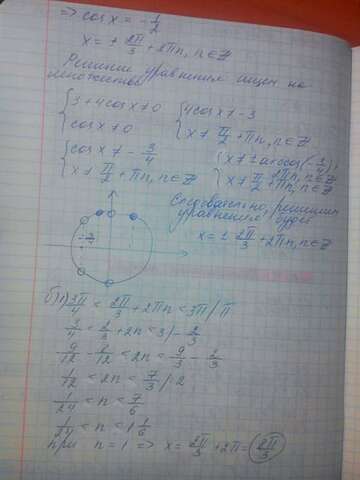 => cos x = - 1/2
x = ± 2π/3 + 2πn, n∈Z
Решение уравнения ищем на
множестве
{ 3+4cosx≠0
cosx≠0
{ 4cosx≠-3
x≠ π/2 + πn, n∈Z
{ cosx≠ - 3/4
x≠ π/2 + πn, n∈Z
{ x≠ ± arccos(- 3/4) + 2πn, n∈Z
x≠ π/2 + πn, n∈Z
Следовательно, решением
уравнения будет
x = ± 2π/3 + 2πn, n∈Z
- 3/4
б) 1) 3π/4 < 2π/3 + 2πn < 3π | /π
3/4 < 2/3 + 2n < 3 | - 2/3
9/12 - 8/12 < 2n < 9/3 - 2/3
1/12 < 2n < 7/3 | :2
1/24 < n < 7/6
1/24 < n < 1 1/6
при n = 1 => x = 2π/3 + 2π =